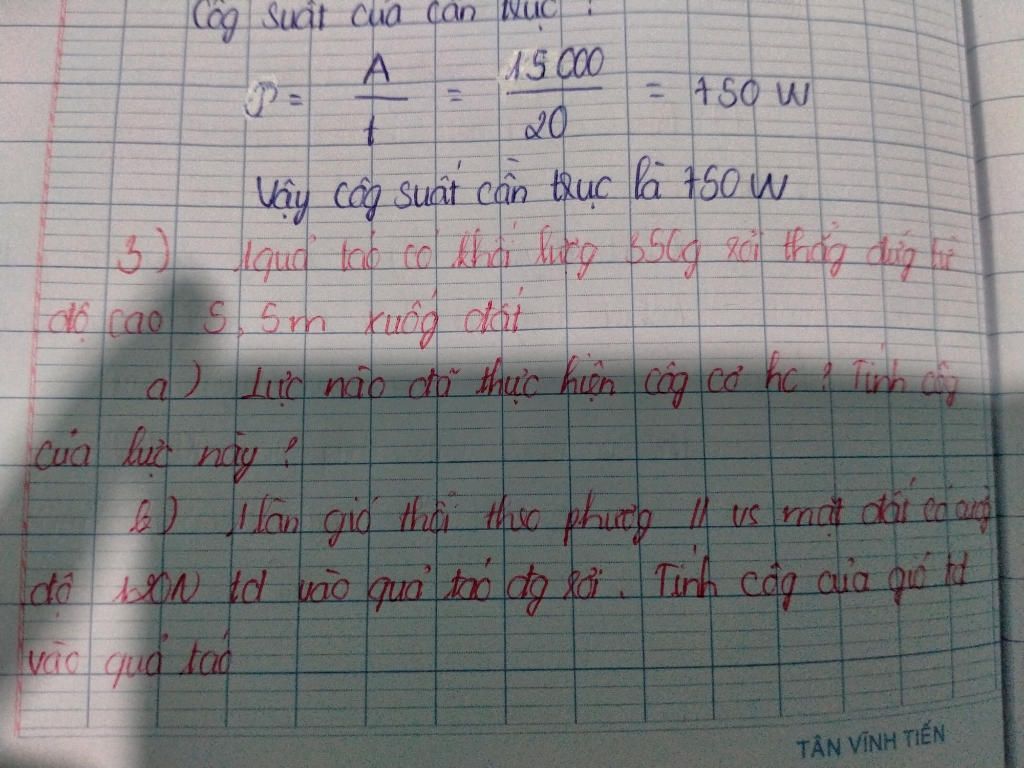 Côg suất của cần trục :
P = A / t = 15 000 / 20 = 750 W
Vậy côg suất cần trục là 750 W
3) 1 quả táo có khối lượg 350g rơi thẳg đứg từ
độ cao 5,5m xuốg đất
a) Lực nào đã thực hiện côg cơ hc ? Tính côg
của lực này ?
b) 1 làn gió thổi theo phươg // vs mặt đất có cườg
độ 120N td vào quả táo đg rơi. Tính côg của gió td
vào quả táo
TÂN VĨNH TIẾN